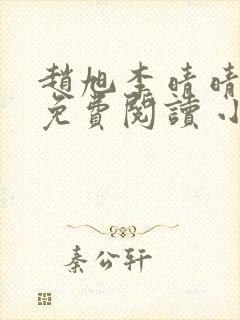 趙旭李晴晴
免費閱讀小
秦公軒